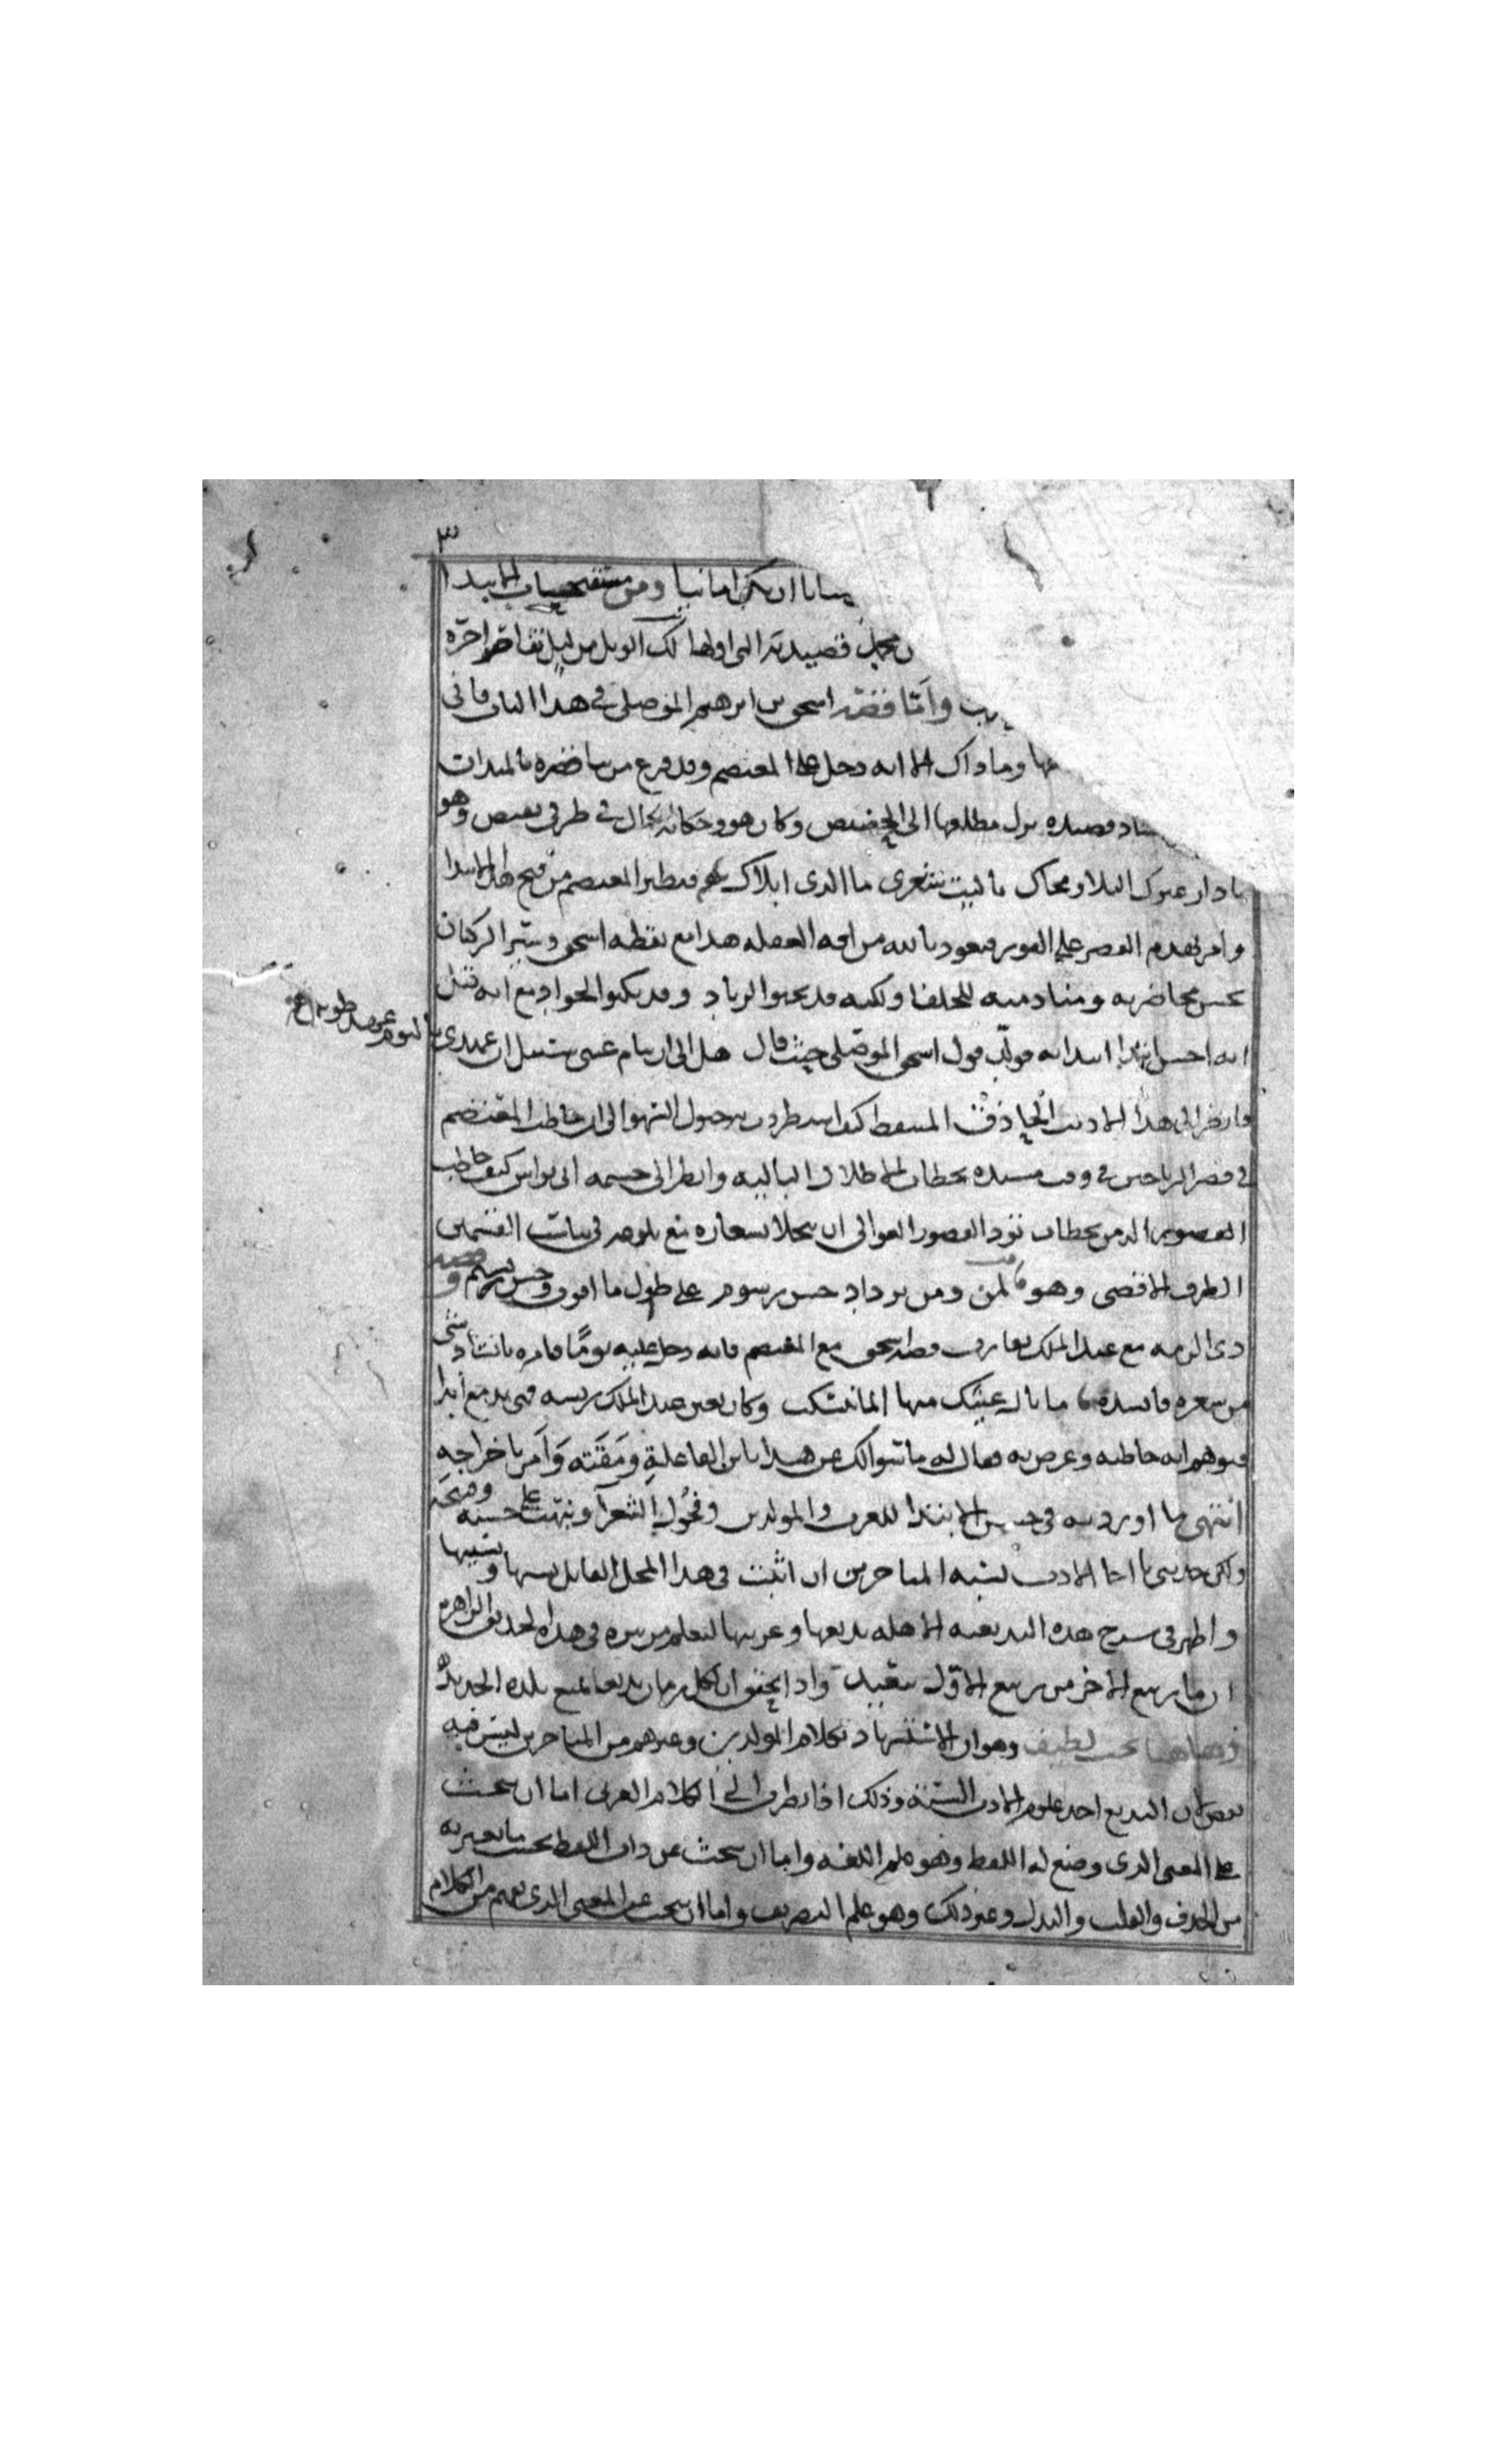 ٣
المنايا ان يكن امانيا ومن مستقبحات الابتدا
قصيدته التى اولها لك الويل من ليل تقاصر اخره
واما قصة اسحق بن ابرهيم الموصلى فى هذا الباب فانى
وما ذاك الا انه دخل على المعتصم وقد فرغ من بنا قصره بالميدان
قصيده نزل مطلعها الى الحضيض وكان هو وحكاية الحال فى طرفى نقيض وهو
يا دار غيرك البلا ومحاك يا ليت شعرى ما الذى ابلاك فتطير المعتصم من قبح هذا الابتدا
وامر بهدم القصر على الفور فنعوذ بالله من افة الغفله هذا مع يقظة اسحق وسير الركبان
بحسن محاضرته ومنادمته للخلفا ولكنه قد يخبو الزناد وقد يكبو الجواد مع انه قيل
انه احسن ابتدا ابتدا به مولد قول اسحق الموصلى حيث قال هل الى ان تنام عينى سبيل ان عهدى
بالنوم عهد طويل
فانظر الى هذا الاديب الحاذق المتيقظ كيف استطردت به خيول السهو الى ان خاطب المعتصم
فى قصر الرياحين فى وقت مسيده بخطاب الاطلال الباليه وانظر الى حشمة ابى نواس كيف خاطب
الدمن بخطاب تود القصور العوالى ان تتحلا بشعاره مع بلوغه فى تناسب القسمين
الطرف الاقصى وهو لمن دمن تزداد حسن رسوم على طول ما اقوت وحسن رسوم وقصة
ذى الرمه مع عبد الملك تقارب قصة اسحق مع المعتصم فانه دخل عليه يوما فامره بانشاد شى
من شعره فانشده ما بال عينك منها الما ينسكب وكان بعين عبد الملك ريشه فهى تدمع ابدا
فتوهم انه خاطبه وعرض به فقال له ما سوالك عن هذا يا ابن الفاعلة ومقته وامر باخراجه
انتهى ما اوردته فى حسن الابتدا للعرب والمولدين وفحول الشعرا ونبهت على حسنه وقبحه
ولكن جذبتنى يا اخا الادب لشبه المتاخرين ان اثبت فى هذا المحل القابل نسبها ونسيبها
واظهر فى شرح هذه البديعيه الاهله بديعها وغريبها ليعلم من تنزه فى هذه الحديقه الزاهره
ان ما ربيع الاخر من ربيع الاول ببعيد واذا تحقق ان لكل زمان بديعا تمتع بلذة الجديد
وهاهنا بحث لطيف وهو ان الاستشهاد بكلام المولدين وغيرهم من المتاخرين ليس فيه
نقص لان البديع احد علوم الادب السته وذلك اذا نظرت الى الكلام العربى اما ان تبحث
على المعنى الذى وضع له اللفظ وهو علم اللغه واما ان تبحث عن ذات اللفظ بحسب ما يعتريه
من الحذف والقلب والبدل وغير ذلك وهو علم التصريف واما ان تبحث عن المعنى الذى يفهم من الكلام